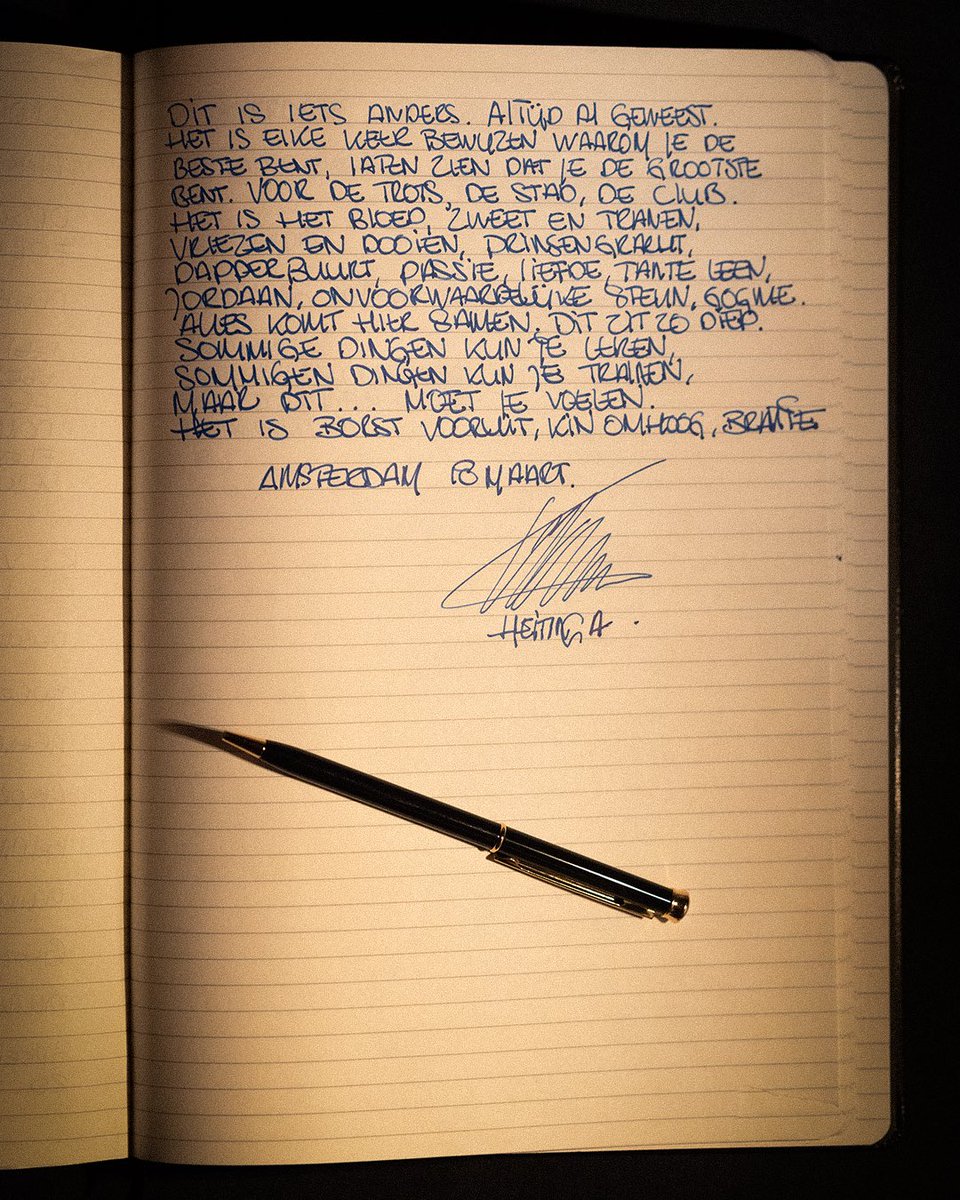 DIT IS IETS ANDERS. ALTIJD AL GEWEEST.
HET IS ELKE KEER BEWIJZEN WAAROM JE DE
BESTE BENT, LATEN ZIEN DAT JE DE GROOTSTE
BENT. VOOR DE TROTS, DE STAD, DE CLUB.
HET IS HET BLOED, ZWEET EN TRANEN,
VRIEZEN EN DOOIEN, PRINSENGRACHT,
DAPPERBUURT, PASSIE, LIEFDE, TANTE LEEN,
JORDAAN, ONVOORWAARDELIJKE STEUN, GOGME.
ALLES KOMT HIER SAMEN. DIT ZIT ZO DIEP.
SOMMIGE DINGEN KUN JE LEREN,
SOMMIGEN DINGEN KUN JE TRAINEN,
MAAR DIT... MOET JE VOELEN.
HET IS BORST VOORUIT, KIN OMHOOG, BRANIE.
AMSTERDAM 18 MAART.
HEITINGA.